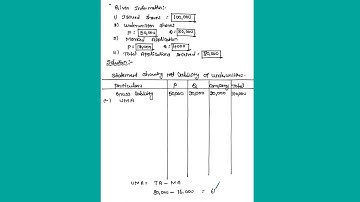 Given Information:-
1) Issued shares = 100,000
2) Underwritten shares
P = 50,000 Q = 30,000
3) Marked Application
P = Q = 4000
4) Total Applications received = 80,000
Solution:-
Statement showing net liability of underwriters:-
Particulars P Q Company Total
Gross liability 50,000 30,000 20,000 100,000
(-) UMA
UMA = TA - MA
80,000 - =